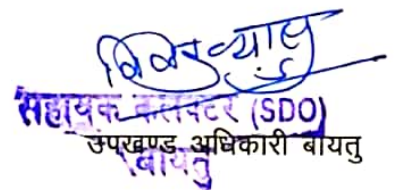 सहायक कलक्टर (SDO)
उपखण्ड अधिकारी बायतु
बायतु